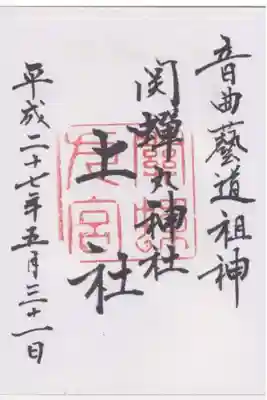 音曲藝道祖神
関蟬丸神社
上社
平成二十七年五月三十一日